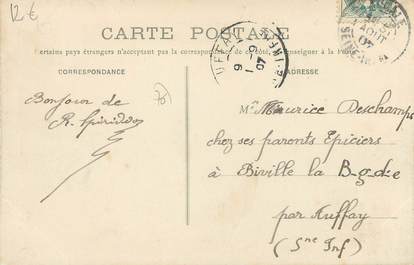 12 €
CARTE POSTALE
Certains pays étrangers n'acceptant pas la correspondance de ce côté, se renseigner à la Poste
CORRESPONDANCE
ADRESSE
AOUT
07
SEINE-INF
UFFAY
9
1-9
07
Bonjour de
R.
76
M. Maurice Deschamps
chez ses parents Epiciers
à Biville la B-g-d-e
par Auffay
(Sne Inf)